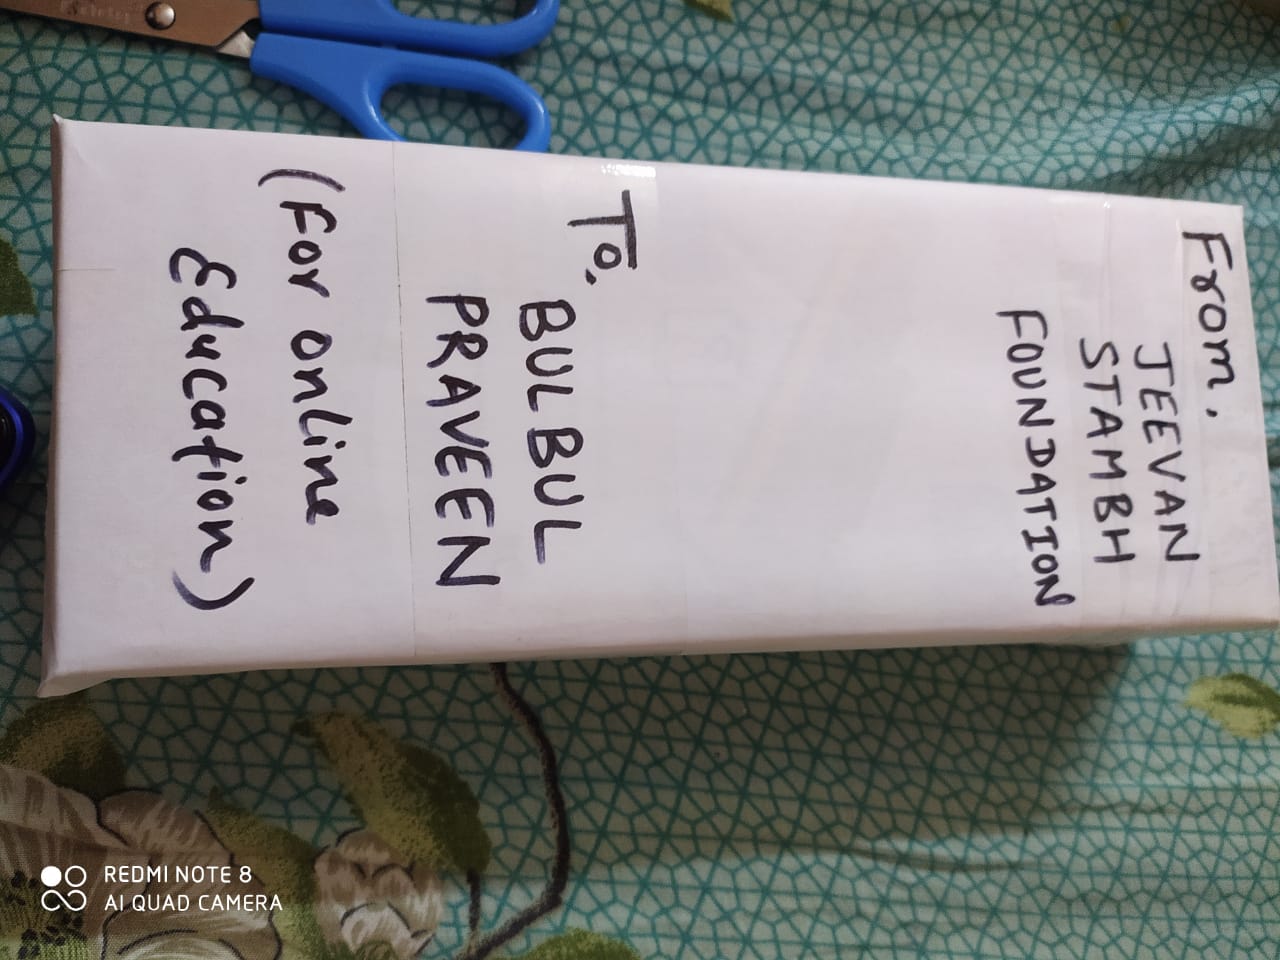 From.
JEEVAN
STAMBH
FOUNDATION
To.
BULBUL
PRAVEEN
(For online
Education)
REDMI NOTE 8
AI QUAD CAMERA